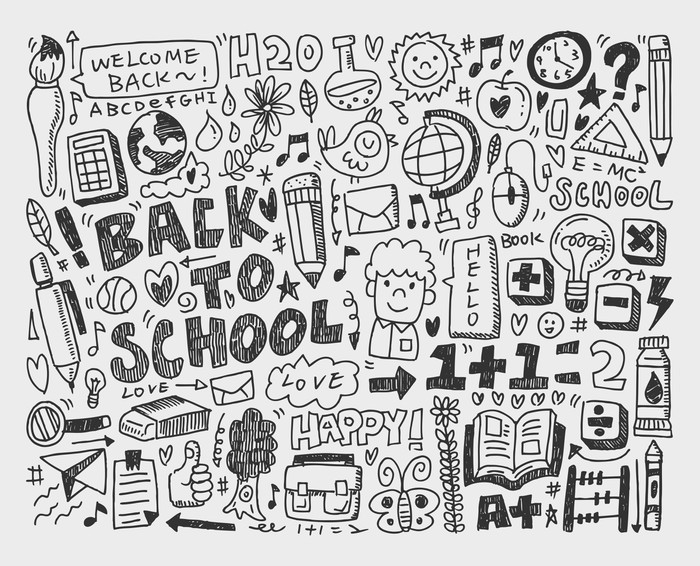 WELCOME
BACK~!
H2O
ABCDeFGHI
E=MC²
SCHOOL
BACK
TO
SCHOOL
HELLO
BOOK
1+1=2
LOVE
LOVE
HAPPY!
A+
1+1=2